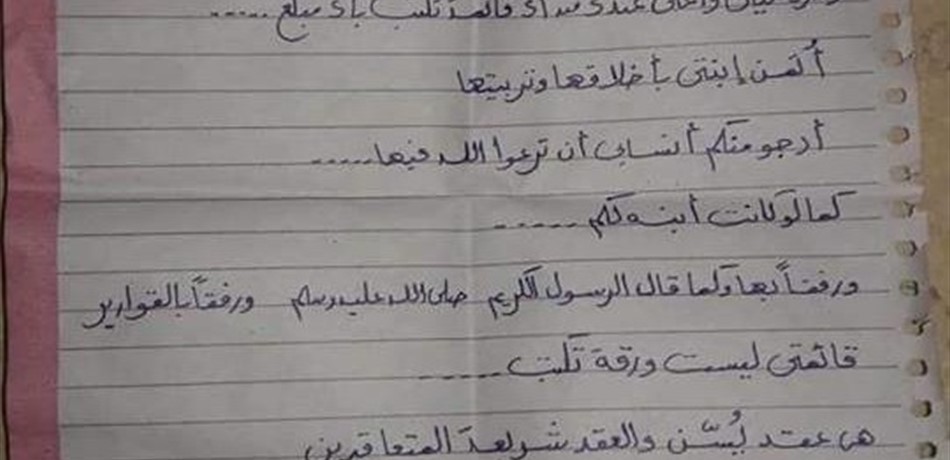 وأغلى عندى من أى قائمة تكتب بأى مبلغ .....
أُثمن إبنتى بأخلاقها وتربيتها
أرجو منكم أنسابى أن ترعوا الله فيها .....
كما لو كانت أبنه لكم ......
ورفقاً بها وكما قال الرسول الكريم صلى الله عليه وسلم ورفقاً بالقوارير
قائمتى ليست ورقة تكتب ......
هى عقد يُسّن والعقد شريعة المتعاقدين